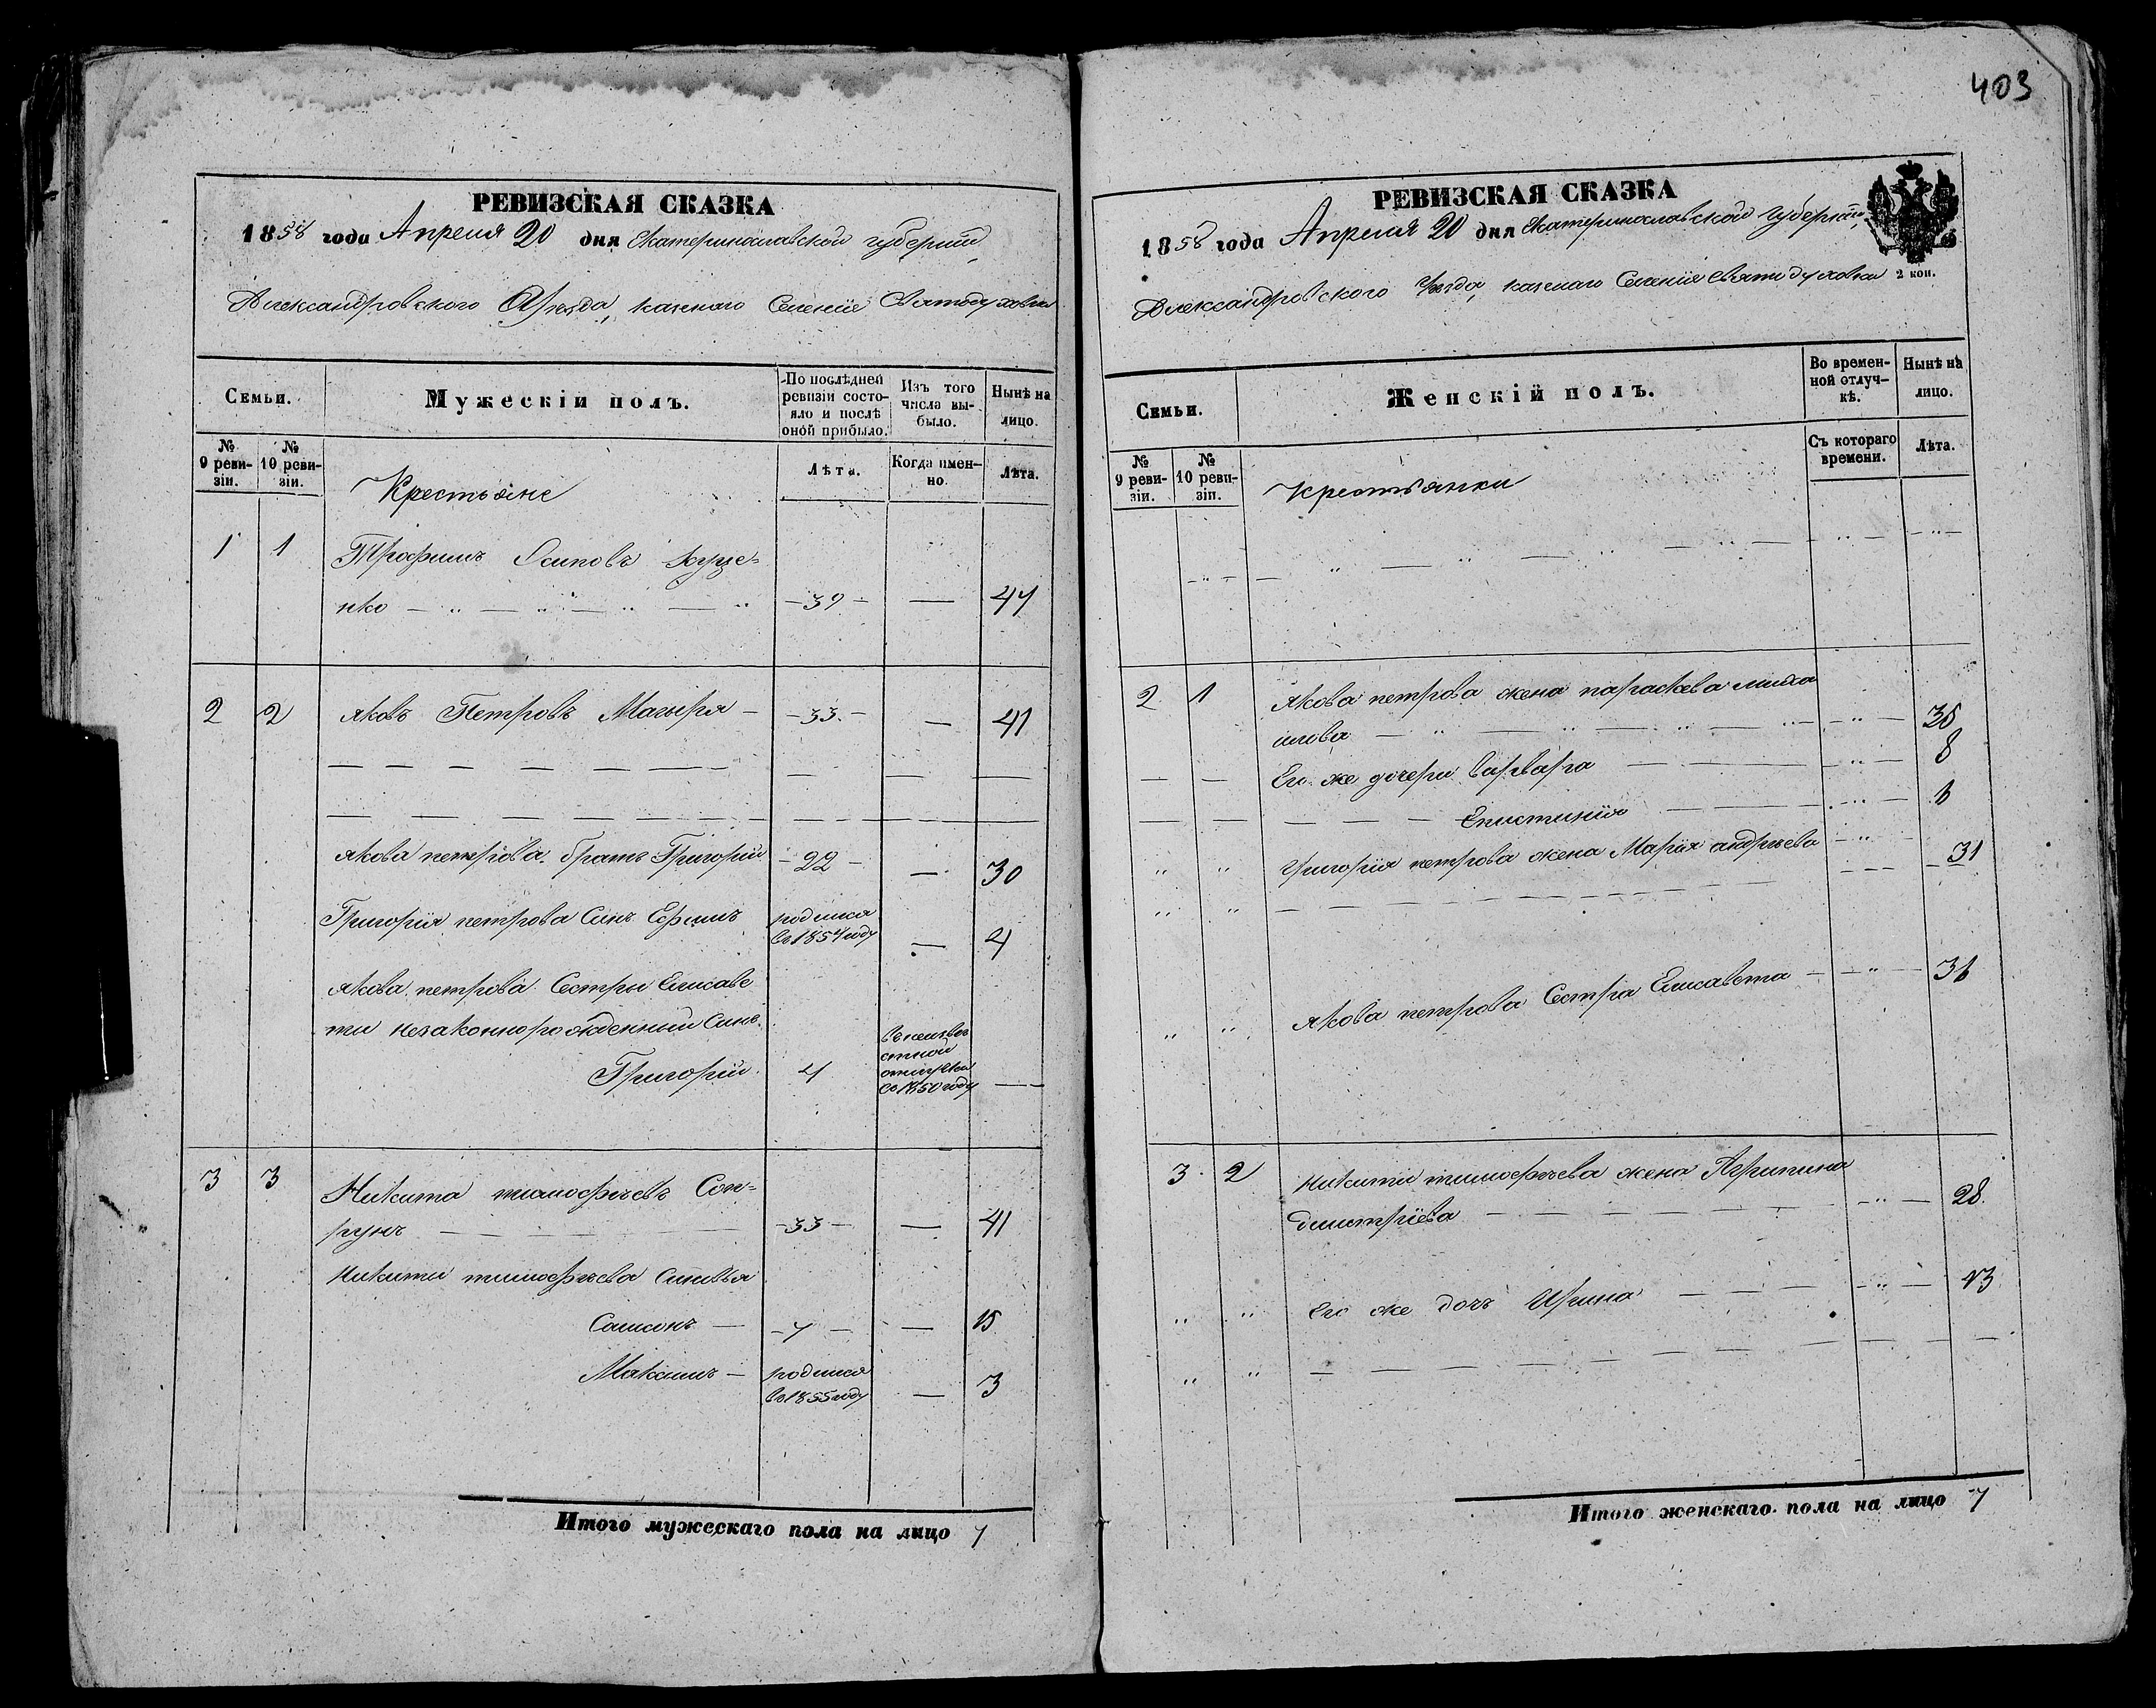 403
РЕВИЗСКАЯ СКАЗКА
1858 года Апреля 20 дня Екатеринославской губернии,
Александровского Уѣзда, казенаго Селение Святодуховки
Семьи.
Мужескій полъ.
По послѣдней ревизіи состояло и послѣ оной прибыло.
Изъ того числа выбыло.
Нынѣ на лицо.
№ 9 ревизіи.
№ 10 ревизіи.
Крестьяне
Лѣта.
Когда именно.
Лѣта.
1 1 Трофимъ Осиповъ Куце=
нко — „ — „ — „ — „ — 39 — — 47
2 2 Яковъ Петровъ Магыря — — 33. — — 41
Якова петрова братъ Григорий — 22 — — 30
Григория петрова Синъ Ефимъ родился
во 1854 году — 4
Якова петрова Сестры Елисаве
ти незаконнорожденный Синъ.
Григорий. 4 въ неизвес
стной
отлучки
со 1850 году —
3 3 Никита тимофѣевъ Соп=
рунъ — 33 — — 41
Никити тимофѣева Синивья
Самсонъ — — 7 — — 15
Максимъ — родился
во 1855 году — 3
Итого мужескаго пола на лицо 7
РЕВИЗСКАЯ СКАЗКА
1858 года Апреля 20 дня Екатеринославской Губернии,
2 коп.
Александровского Уѣзда, казенаго Селения Святодуховки
Семьи.
Женскій полъ.
Во временной отлучкѣ.
Нынѣ на лицо.
№ 9 ревизіи.
№ 10 ревизіи.
Крестьянки
Съ котораго времени.
Лѣта.
2 1 Якова петрова жена параскева миха
илова — „ — „ — „ — 36
Его же дочери Варвара — „ — 8
Епистиния — „ — 6
„ „ Григория петрова жена Мария андреева — „ — 31
„ „ Якова петрова Сестра Елисавета — „ — 36
3 2 Никити тимофѣева жена Агрипина
Дмитриева — „ — 28.
„ „ Его же дочь Ирина — „ — 13
Итого женскаго пола на лицо 7